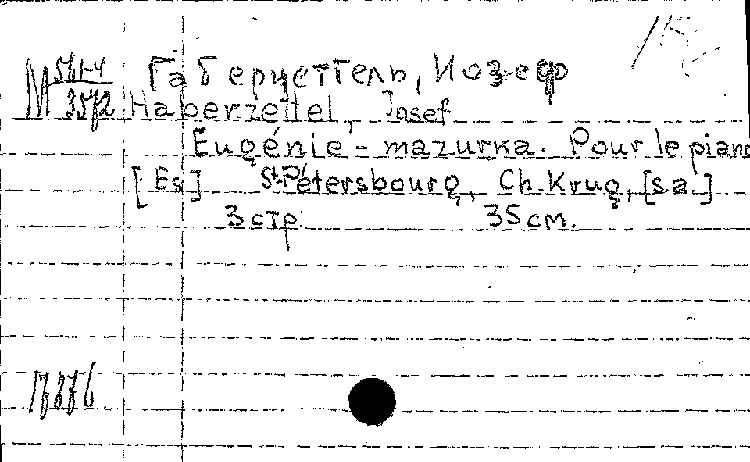 М 561-4/3572 Габерцеттель, Иозеф
Haberzettel, Josef
Eugénie - mazurka. Pour le piano
[Es] St-Pétersbourg, Ch. Krug, [s.a.]
3 стр. 35 см.